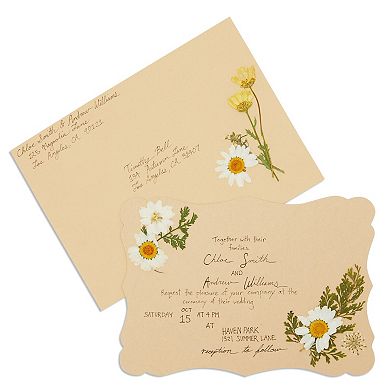 Chloe Smith & Andrew Williams
325 Magnolia Lane
Los Angeles, CA
Timothy Bell
Autumn Lane
Los Angeles, CA
Together with their
families
Chloe Smith
AND
Andrew Williams
Request the pleasure of your company at the
ceremony of their wedding
SATURDAY OCT 15 AT 4 PM
AT
HAVEN PARK
1521 SUMMER LANE
reception to follow